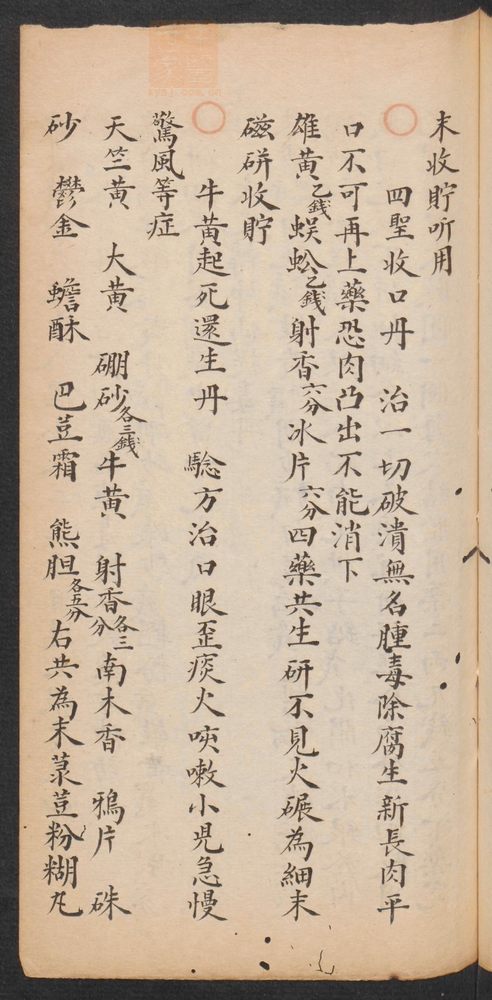 末收貯听用
〇 四聖收口丹 治一切破潰無名腫毒除腐生新長肉平
口不可再上藥恐肉凸出不能消下
雄黃乙錢蜈蚣乙錢射香六分冰片六分四藥共生研不見火碾為細末
磁硑收貯
〇 牛黃起死還生丹 驗方治口眼歪痰火咳嗽小児急慢
驚風等症
天竺黃 大黃 硼砂各三錢牛黃 射香各三分南木香 鴉片 硃
砂 鬱金 蟾酥 巴荳霜 熊胆各五分右共為末菉荳粉糊丸